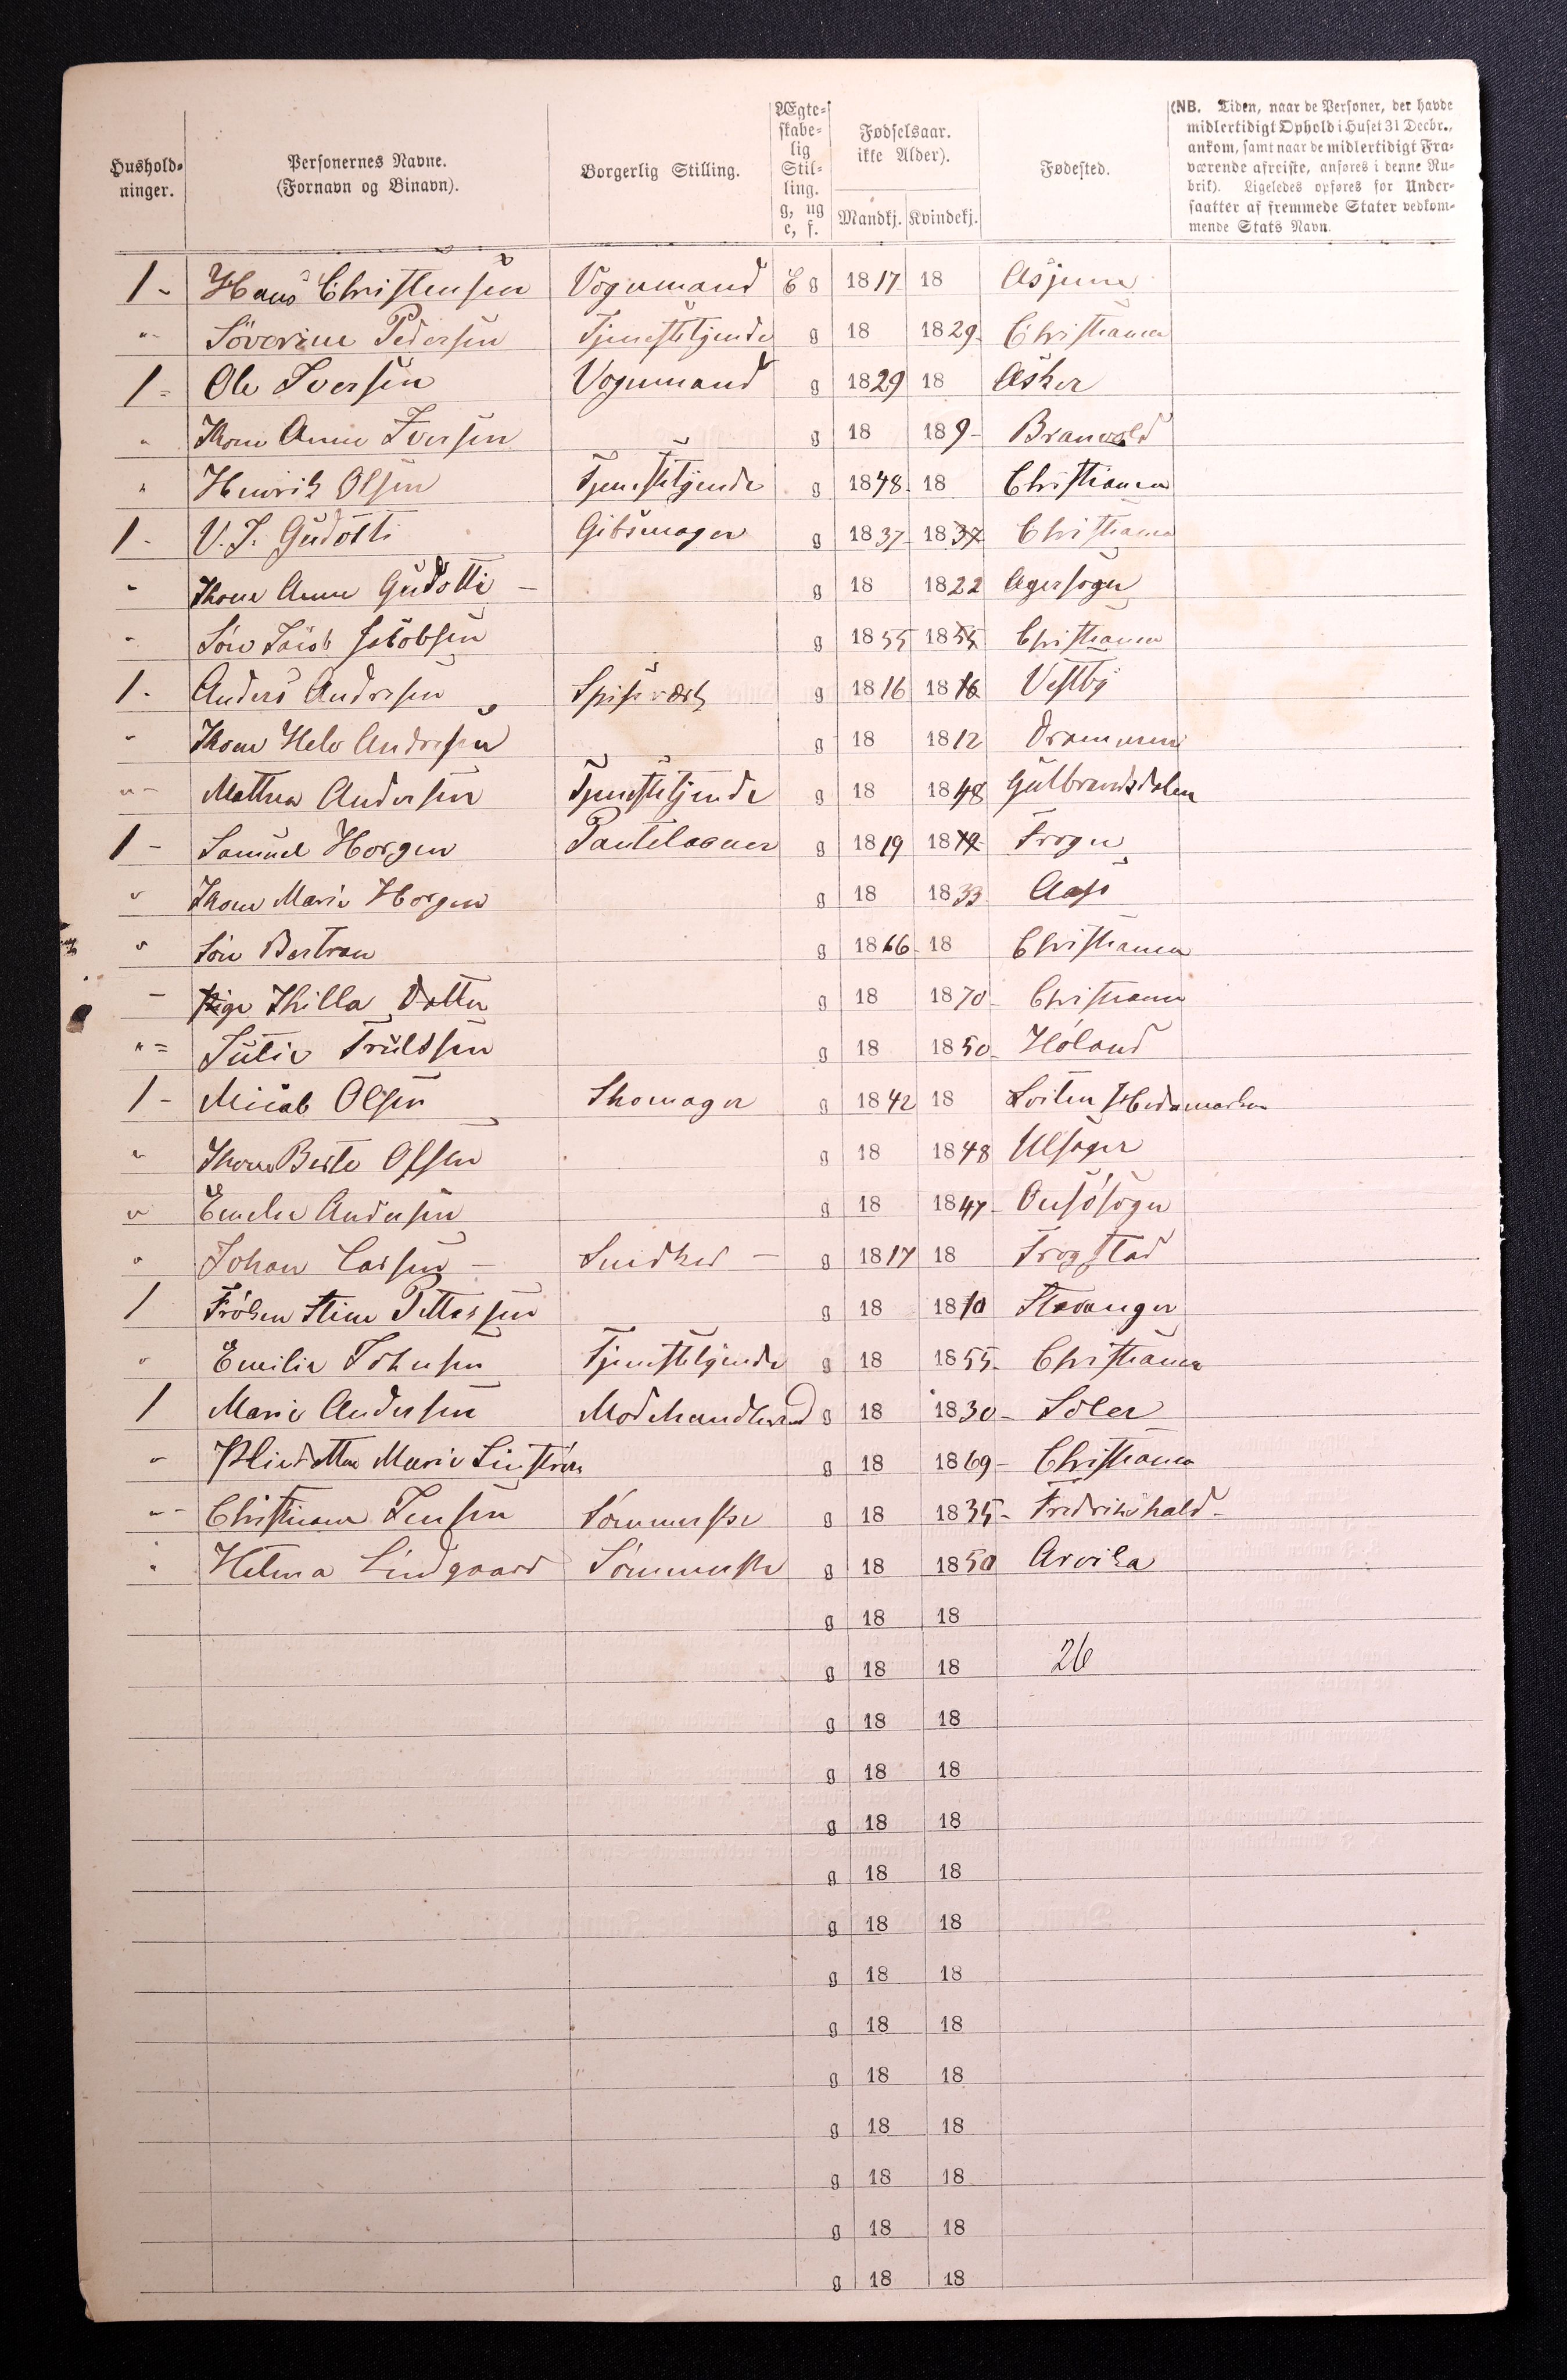 Hushold-ninger.
Personernes Navne. (Fornavn og Binavn).
Borgerlig Stilling.
Ægte-skabe-lig Stil-ling. g, ug e, f.
Fødselsaar. ikke Alder).
Mandkj. Kvindekj.
Fødested.
(NB. Tiden, naar de Personer, der havde
midlertidigt Ophold i Huset 31 Decbr.,
ankom, samt naar de midlertidigt Fra-
værende afreiste, anføres i denne Ru-
brik). Ligeledes opføres for Under-
saatter af fremmede Stater vedkom-
mende Stats Navn.
1 - Hans Christensen Vognmand E g 1817 18 Asjum
" - Söverine Pedersen Tjenestetjende g 18 1829 Christiania
1 - Ole Iversen Vognmand g 1829 18 Asker
" Kone Anne Iversen g 18 189 - Branvold
" Henrik Olsen Tjenestetjende g 1848 18 Christiania
1 - V. J. Gudotti Gibsmager g 1837 1837 Christiania
" Kone Anne Gudotti - g 18 1822 Agersogn
" Sön Jacob Jakobsen g 1855 1855 Christiania
1 - Anders Andresen Spisevært g 1816 1816 Vestby
" Kone Hele Andresen g 18 1812 Drammen
" - Mathea Andersen Tjenestetjende g 18 1848 Gulbrandsdalen
1 - Samuel Horgen Pantelaaner g 1819 1819 Frogn
" Kone Marie Horgen g 18 1833 Aas
" Sön Bertran g 1866 18 Christiania
- Pige Thilla Datter g 18 1870 - Christiania
" = Julie Truldsen g 18 1850 - Höland
1 - Olsen Skomager g 1842 18 Loiten Hedemarken
" Kone Berte Olsen g 18 1848 Ulsager
" Emelie Andersen g 18 1847 - Onsösogn
" Johan Larsen - Snedker - g 1817 18 Trogstad
1 Fröken Stine Pettersen g 18 1810 Stavanger
" Emilie Johnsen Tjenestetjende g 18 1855 - Christiania
1 Marie Andersen Modehandlerind g 18 1830 - Soler
" Pleiedatter Marie Linström g 18 1869 - Christiania
" - Christiane Jensen Sömmerske g 18 1835 - Fredrikshald -
" Helma Lindgaard Sömmerske g 18 1850 Arvika
g 18 18
g 18 18 26
g 18 18
g 18 18
g 18 18
g 18 18
g 18 18
g 18 18
g 18 18
g 18 18
g 18 18
g 18 18
g 18 18
g 18 18